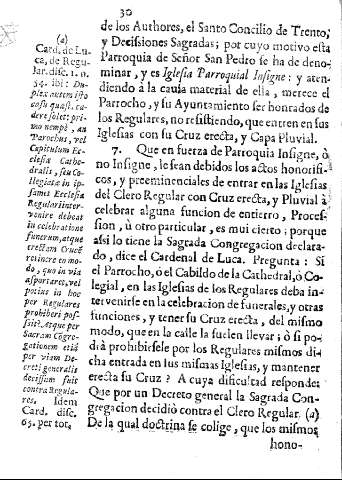 30
de los Authores, el Santo Concilio de Trento,
y Decisiones Sagradas; por cuyo motivo esta
Parroquia de Señor San Pedro se ha de deno-
minar, y es Iglesia Parroquial Insigne: y aten-
diendo à la causa material de ella, merece el
Parrocho, y su Ayuntamiento ser honrados de
los Regulares, no resistiendo, que entren en sus
Iglesias con su Cruz erecta, y Capa Pluvial.
7. Que en fuerza de Parroquia Insigne, ò
no Insigne, le sean debidos los actos honorifi-
cos, y preeminenciales de entrar en las Iglesias
del Clero Regular con Cruz erecta, y Pluvial à
celebrar alguna funcion de entierro, Proces-
sion, ù otro particular, es mui cierto: porque
assi lo tiene la Sagrada Congregacion declara-
do, dice el Cardenal de Luca. Pregunta: Si
el Parrocho, ò el Cabildo de la Cathedral, ò Co-
legial, en las Iglesias de los Regulares deba in-
tervenirse en la celebracion de funerales, y otras
funciones, y tener su Cruz erecta, del mismo
modo, que en la calle la suelen llevar; ò si po-
drà prohibirsele por los Regulares mismos di-
cha entrada en sus mismas Iglesias, y mantener
erecta su Cruz? A cuya dificultad responde:
Que por un Decreto general la Sagrada Con-
gregacion decidiò contra el Clero Regular. (a)
De la qual doctrina se colige, que los mismos
hono-
(a)
Card. de Lu-
ca, de Regu-
lar. disc. 1. n.
54. ibi: Du-
plex autem isto
casu quæst. ca-
dere solet: pri-
mo nempè, an
Parochus, vel
Capitulum Ec-
clesiæ Cathe-
dralis, seu Co-
llegiatæ in ip-
samet Ecclesia
Regularii inter-
venire debeat
in celebratione
funerum, atque
erectam Crucē
retinere eo mo-
do, quo in via
asportaret, vel
potius in hoc
per Regulares
prohiberi pos-
sit? Atque per
Sacram Cogre-
gationem etiā
per viam De-
creti generalis
decissum fuit
contra Regula-
res. Idem
Card. disc.
65. per tot.